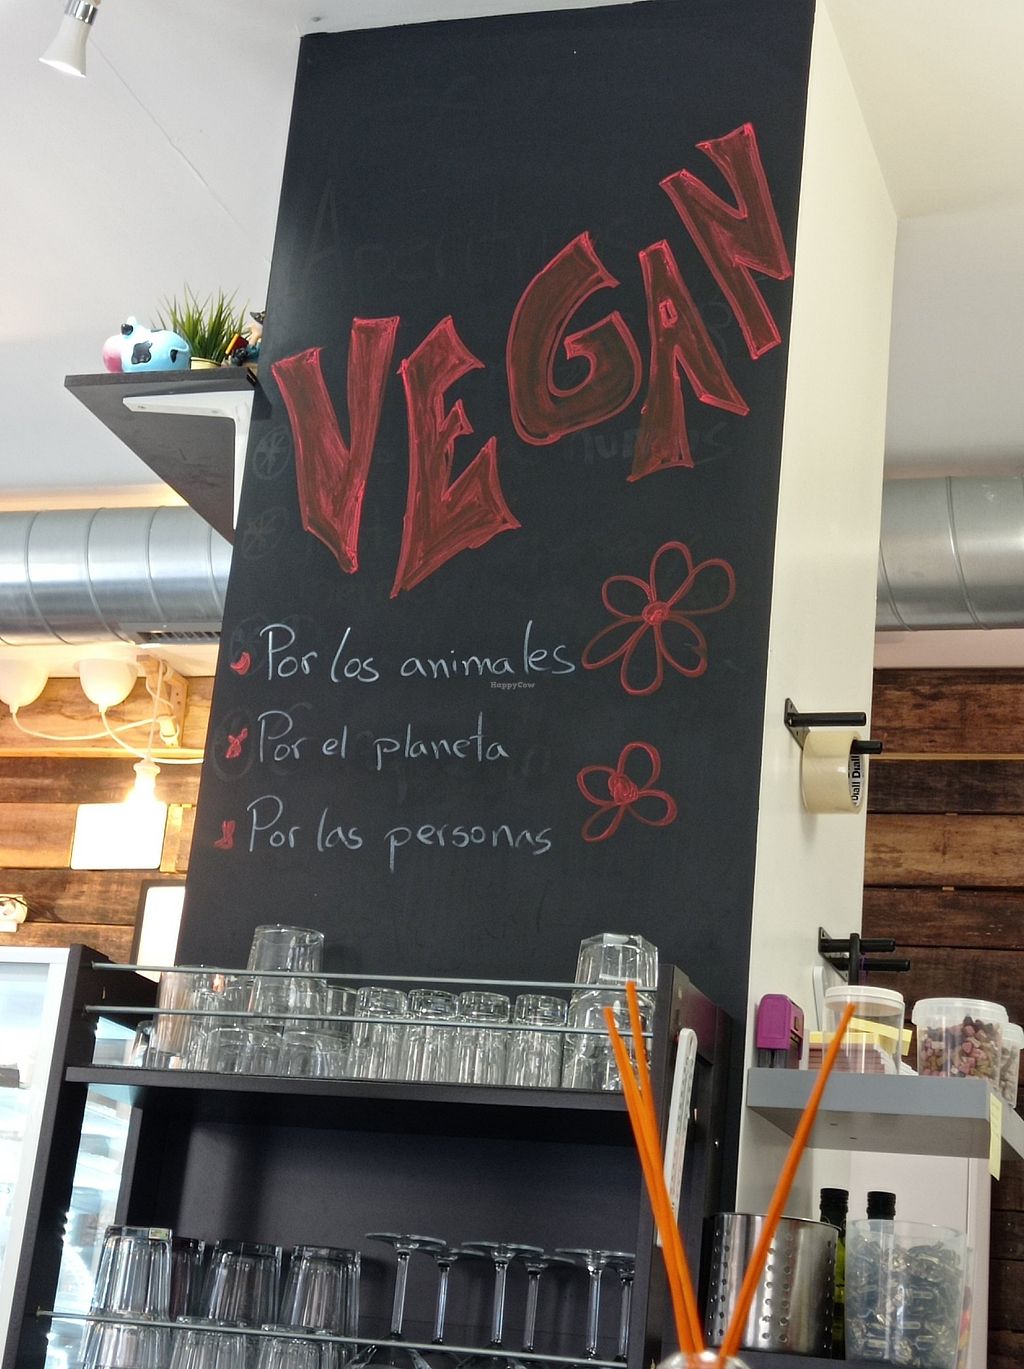 VEGAN
Por los animales
HappyCow
Por el planeta
Por las personas
Diall Diall